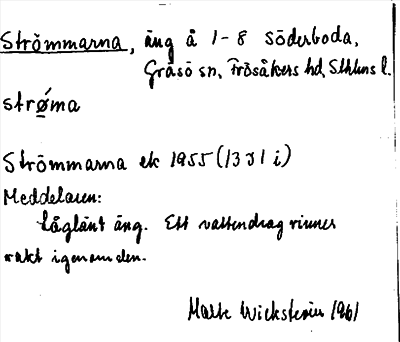 Strömmarna, äng å 1-8 Söderboda,
Gräsö sn, Frösåkers hd, Sthlms l.
strǿma
Strömmarna ek 1955 (13J1 i)
Meddelaren:
Låglänt äng. Ett vattendrag rinner
rakt igenom den.
Marte Wickström 1961